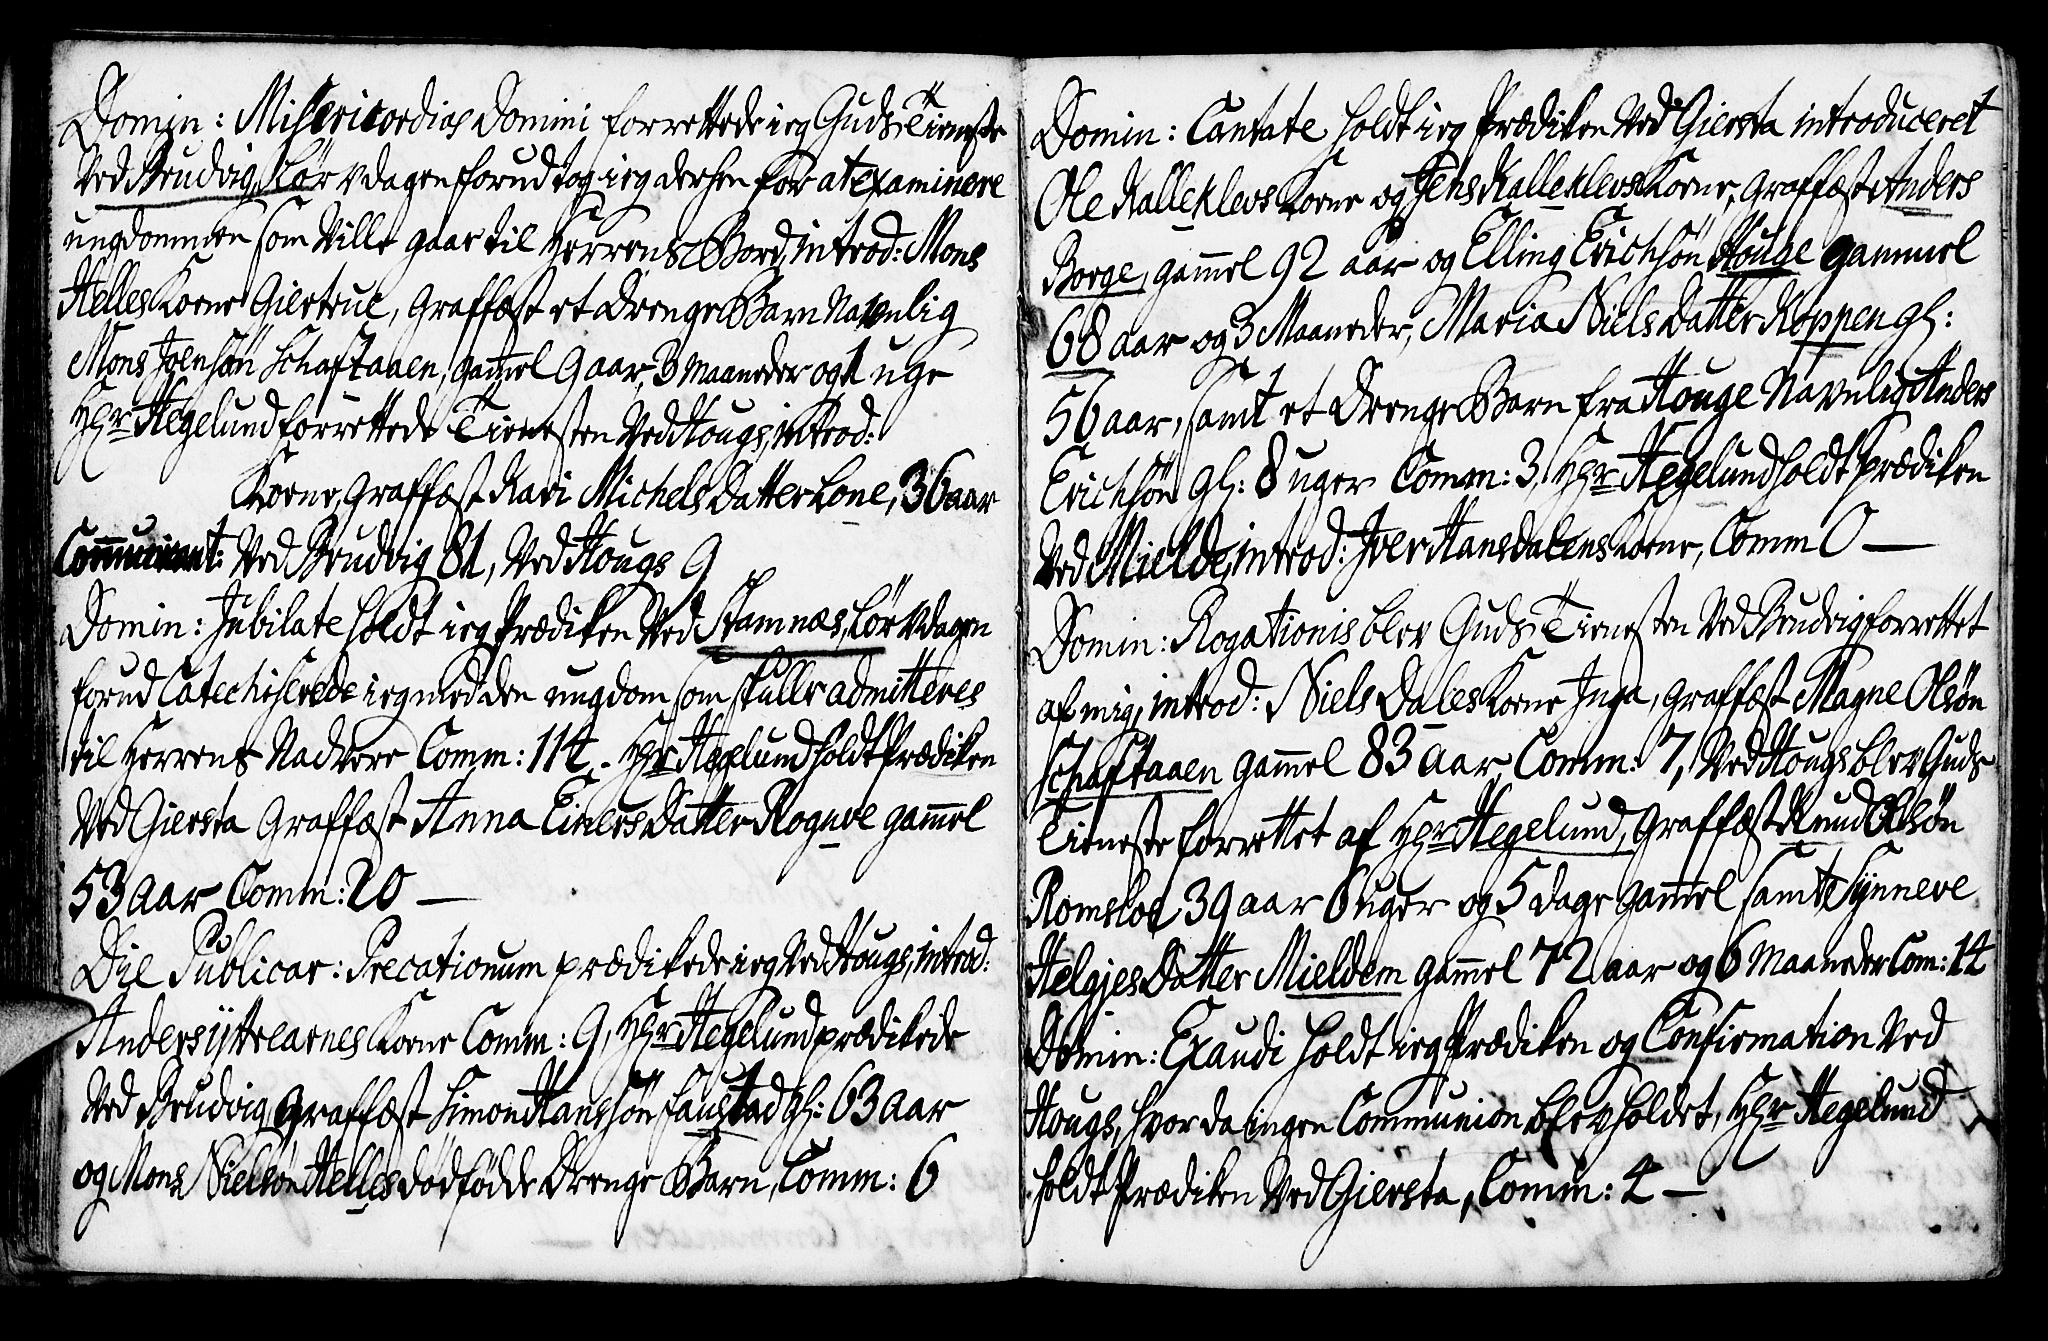 Domin: Misericordias Domini forrettede ieg Guds Tieneste
Ved Brudvig, Lørvdagen forud tog ieg derhen for at examinere
ungdommen som Ville gaae til Herrens Bord, introd: Mons
Helles Kone Giertrue, Graffæst et Drenge Barn Navnlig
Mons Joensøn Schaftaaen, gam̄el 9 aar, 3 maaneder og 1 uge
Hr Hegelund forrettede Tienesten Ved Hougs, introd:
Kone, Graffæst Kari Michels Datter Lone, 36 aar
Com̄unicant: Ved Brudvig 81, Ved Hougs 9
Domin: Jubilate holdt ieg Prædiken Ved Stamnæs, Lørvdagen
forud Catechiserede ieg med den ungdom som skulle admitteres
til Herrens Nadvere Comm: 114. Hr Hegelund holdt Prædiken
Ved Giersta Graffæst Anna Einers Datter Rognve gam̄el
53 aar Comm: 20 —
Die Publicar: Precationum prædikede ieg Ved Hougs, introd:
Anders ÿttrearnes Kone Comm: 9, Hr Hegelund prædikede
Ved Brudvig Graffæst Simon Hanssøn Faustad gl: 63 aar
og Mons Nielsøn Helles dødfødde Drenge Barn, Comm: 6
Domin: Cantate holdt ieg Prædiken Ved Giersta introduceret
Ole Kalleklevs Kone og Jens Kalleklevs Kone, Graffæst Anders
Borge, gam̄el 92 aar og Elling Erichsøn Houge gammel
68 aar og 3 Maaneder, Maria Niels Datter Koppen gl:
56 aar, samt et Drenge Barn fra Houge Navnlig Anders
Erichsøn gl: 8 uger Comm: 3, Hr Hegelund holdt Prædiken
Ved Mielde, introd: Iver Hansdalens Kone, Comm 0 —
Domin: Rogationis blev Guds Tienesten Ved Brudvig forrettet
af mig, introd: Niels Dales Kone Inga, Graffæst Magne Olsøn
Schaftaaen gam̄el 83 aar, Comm: 7, Ved Hougs blev Guds
Tieneste forrettet af Hr Hegelund, Graffæst Knud Olsøn
Romsloe 39 aar 6 uger og 5 dage gam̄el samt Sÿnneve
Helgjes Datter Mieldem gam̄el 72 aar og 6 Maaneder Com: 14
Domin: Exaudi holdt ieg Prædiken og Confirmation Ved
Hougs, hvor da ingen Communion blev holdet, Hr Hegelund
holdt Prædiken Ved Giersta, Comm: 4 —